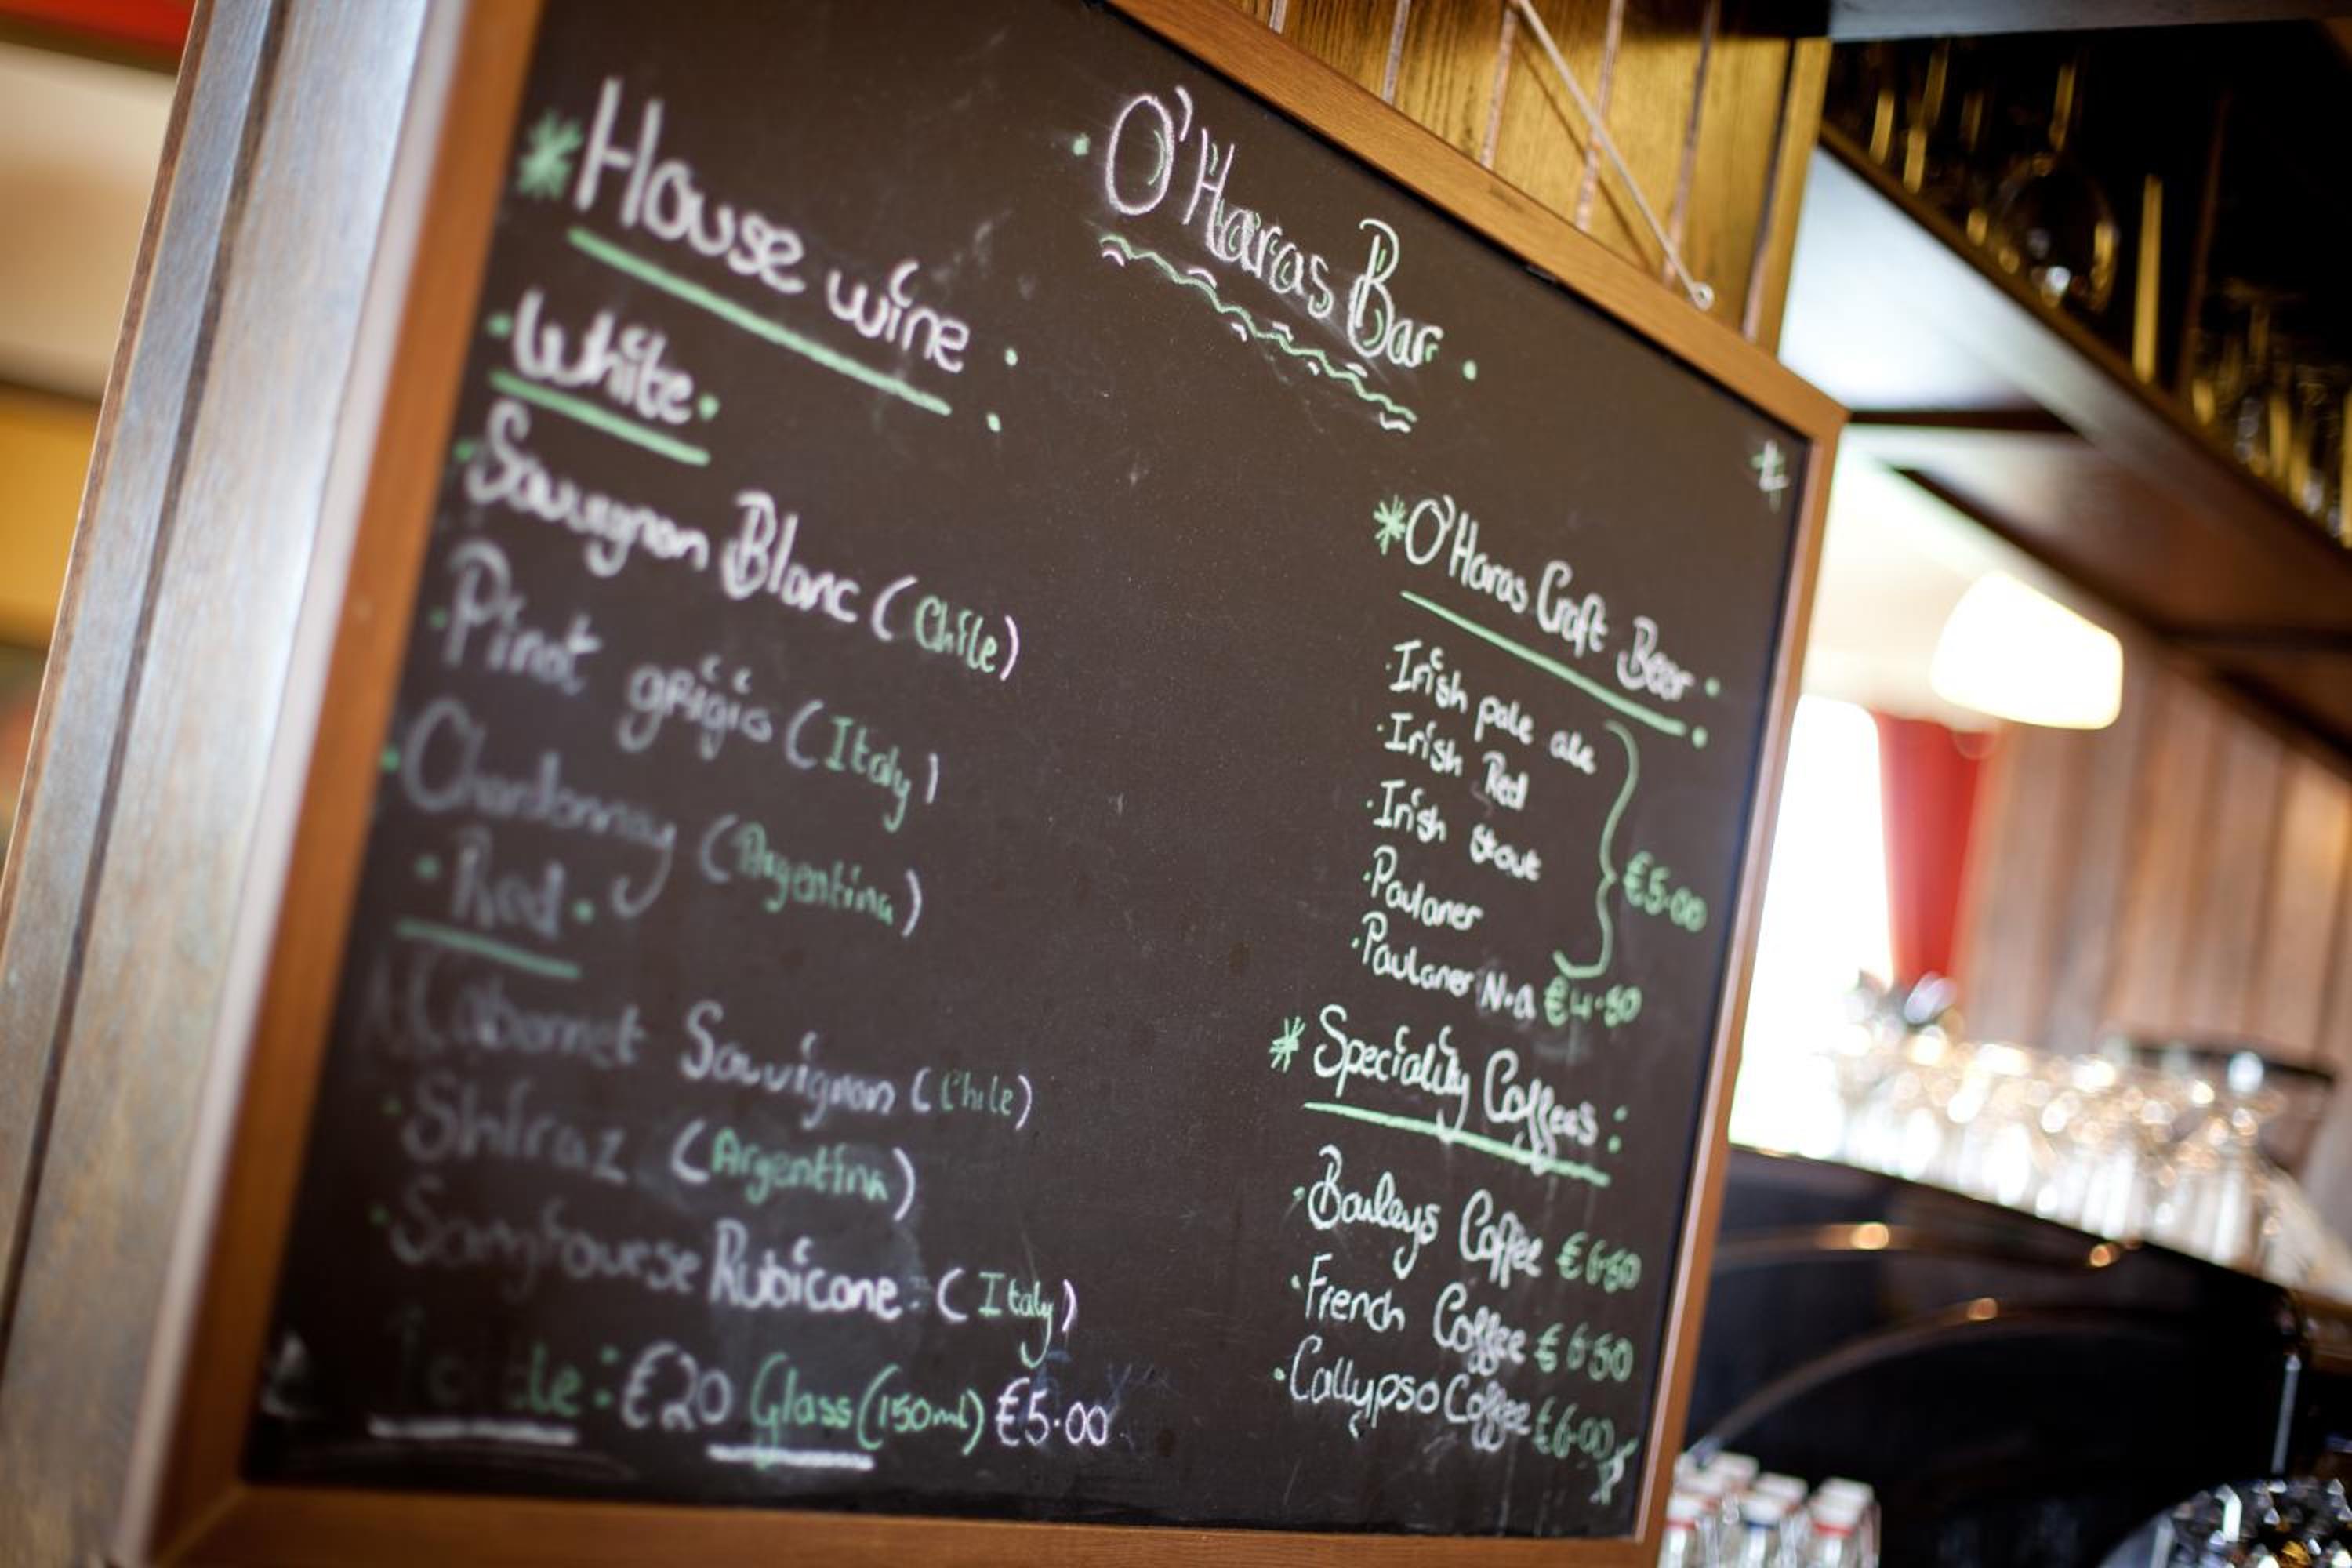 O'Haras Bar
House wine
White
Sauvignon Blanc (Chile)
Pinot grigio (Italy)
Chardonnay (Argentina)
Red
Cabernet Sauvignon (Chile)
Shiraz (Argentina)
Rubicone (Italy)
: €20 Glass (150ml) €5.00
*O'Haras Craft Beer
Irish pale ale
Irish Red
Irish Stout
Paulaner
€5.00
Paulaner N.A €4.50
* Speciality Coffees:
Baileys Coffee €6.50
French Coffee €6.50
Callypso Coffee €6.00